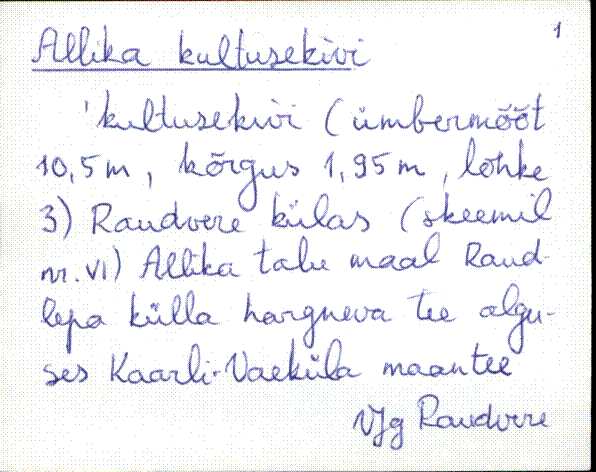 1
Allika kultusekivi
'kultusekivi (ümbermõõt
10,5m, kõrgus 1,95m, lohke
3) Raudvere külas (skeemil
nr. VI) Allika talu maal Raud-
lepa külla hargneva tee algu-
ses Kaarli-Vaeküla maantee
VJg Raudvere